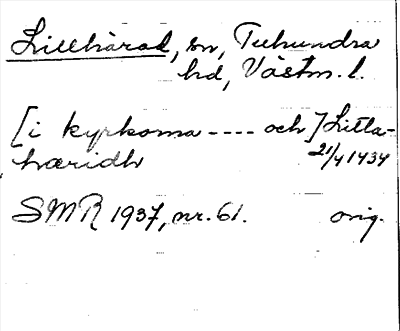 Lillhärad, sn, Tuhundra
hd, Västm. l.
[i kyrkoma ---- och] Litla-
hæridh 21/4 1434
SMR 1937, nr. 61. orig.